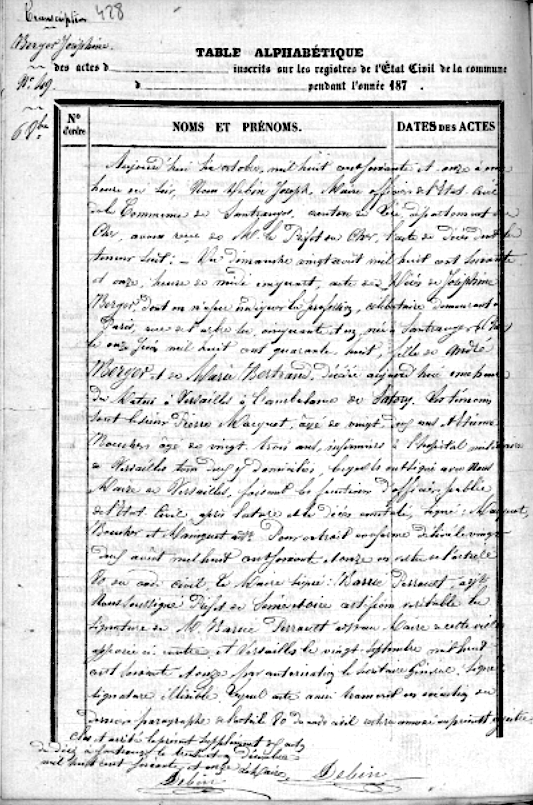 Transcription 428
Berger Joséphine
N° 49
6 8bre
TABLE ALPHABÉTIQUE
des actes d inscrits sur les registres de l'État Civil de la commune
d pendant l'année 187 .
N° d'ordre NOMS ET PRÉNOMS. DATES DES ACTES
Aujourd'hui six octobre, mil huit cent soixante et onze à onze
heure du soir, Nous Debin Joseph, Maire officier de l'état civil
de la Commune de Santranges, canton de Léré, département du
Cher, avons reçu de M. le Préfet du Cher, l'acte de décès dont la
teneur suit : — Du dimanche vingt août mil huit cent soixante
et onze, heure de midi cinquant, acte de Décès de Joséphine
Berger, dont on n'a pu indiquer la profession, célibataire demeurant à
Paris, rue de l'arbre sec cinquante et un, née à Santranges
le onze Juin mil huit cent quarante huit, fille de André
Berger et de Marie Bertrand, décédée aujourd'hui onze heure
du Matin à Versailles à l'ambulance de Satory. Les témoins
sont les sieurs Pierre Macquet, âgé de vingt deux ans et Etienne
Boucher âgé de vingt trois ans, infirmiers à l'hôpital militaire
de Versailles tous deux y domiciliés, lesquels ont signé avec Nous
Maire de Versailles, faisant les fonctions d'officier public
de l'état Civil, après lecture et le décès constaté, signé : Macquet,
Boucher et Mainguet adjt. Pour extrait conforme délivré le vingt
deux août mil huit cent soixante et onze en vertu de l'article
80 du code civil le Maire signé : Barré Perrault adjt.
Nous soussigné Préfet de Seine et Oise certifions véritable la
signature de M. Barré Perrault adj. au Maire de cette ville
apposée ci contre, et Versailles le vingt Septembre mil huit
cent soixante et onze par autorisation le Secrétaire Général. signé
signature illisible. Lequel acte avons transcrit en exécution du
dernier paragraphe de l'article 80 du code civil
Clos et arrêté le présent supplément
de décès à Santranges le trente et un décembre
mil huit cent soixante et onze
Debin Debin